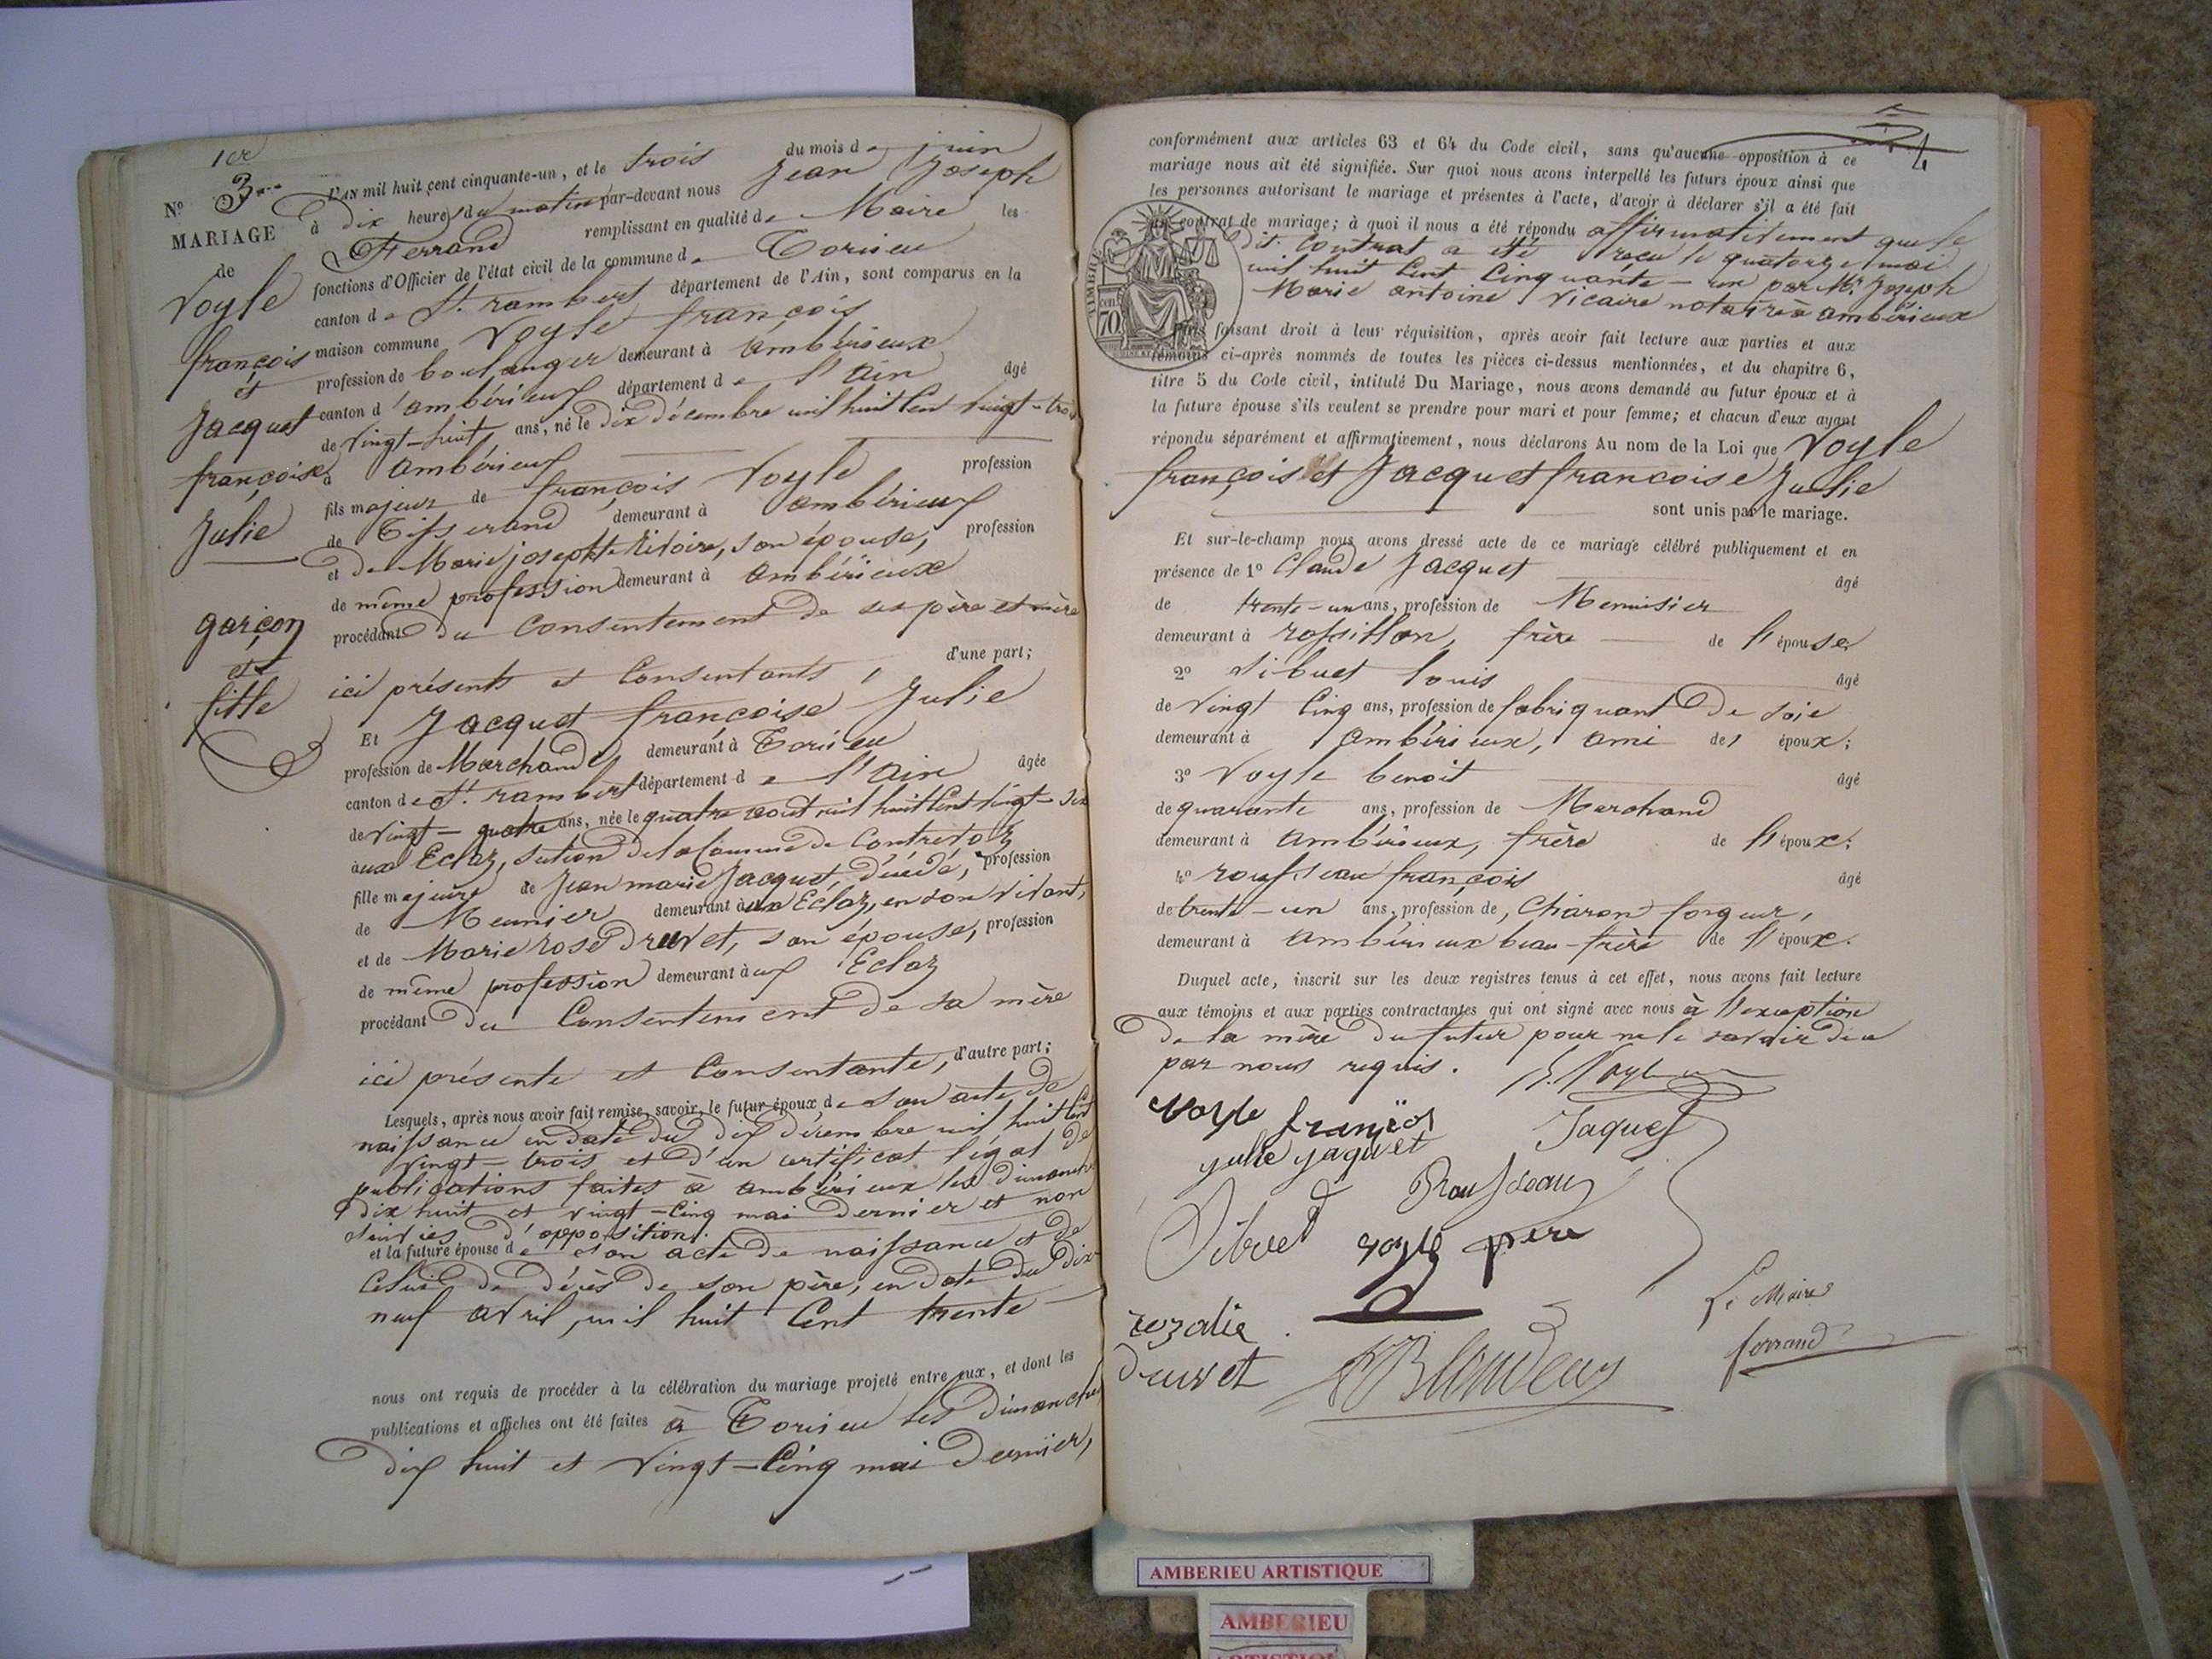 1er
No 3me
MARIAGE
de
Voyle
françois
et
Jacquet
françoise
Julie
garçon
et
fille
L'AN mil huit cent cinquante-un, et le trois du mois de juin
à dix heures du matin par-devant nous Jean Joseph
Ferrand remplissant en qualité de Maire les
fonctions d'Officier de l'état civil de la commune de Torcieu
canton de St. rambert département de l'Ain, sont comparus en la
maison commune Voyle françois
profession de boulanger demeurant à ambérieux
canton d'ambérieux département de l'Ain âgé
de vingt-huit ans, né le dix décembre mil huit Cent vingt-trois
à ambérieux
fils majeur de françois Voyle profession
de Tisserand demeurant à ambérieux
et de Marie josephte son épouse, profession
de même profession demeurant à ambérieux
procédant du Consentement de ses père et mère
ici présents et Consentants, d'une part;
Et Jacquet françoise Julie
profession de Marchande demeurant à Torcieu
canton de St. rambert département de l'Ain âgée
de vingt-quatre ans, née le quatre aout mil huit Cent vingt-six
aux Eclaz, section de la Commune de Contrevoz
fille majeure de Jean marie Jacquet, décédé, profession
de Meunier demeurant aux Eclaz, en son vivant,
et de Marie rose Druvet, son épouse, profession
de même profession demeurant aux Eclaz
procédant du Consentement de sa mère
ici présente et Consentante, d'autre part;
Lesquels, après nous avoir fait remise, savoir, le futur époux, de son acte de
naissance en date du dix décembre mil huit Cent
vingt-trois et d'un certificat légal de
publications faites à ambérieux les dimanches
dix huit et vingt-Cinq mai dernier et non
suivies d'opposition.
et la future épouse de son acte de naissance et de
Celui de décès de son père, en date du dix
neuf avril, mil huit Cent trente
nous ont requis de procéder à la célébration du mariage projeté entre eux, et dont les
publications et affiches ont été faites à Torcieu les dimanches
dix huit et vingt-Cinq mai dernier,
4
conformément aux articles 63 et 64 du Code civil, sans qu'aucune opposition à ce
mariage nous ait été signifiée. Sur quoi nous avons interpellé les futurs époux ainsi que
les personnes autorisant le mariage et présentes à l'acte, d'avoir à déclarer s'il a été fait
contrat de mariage; à quoi il nous a été répondu affirmativement que le
dit Contrat a été reçu le quatorze mai
mil huit Cent Cinquante-un par Mr. Joseph
Marie antoine Vicaire notaire à ambérieux
cent 70
faisant droit à leur réquisition, après avoir fait lecture aux parties et aux
témoins ci-après nommés de toutes les pièces ci-dessus mentionnées, et du chapitre 6,
titre 5 du Code civil, intitulé Du Mariage, nous avons demandé au futur époux et à
la future épouse s'ils veulent se prendre pour mari et pour femme; et chacun d'eux ayant
répondu séparément et affirmativement, nous déclarons Au nom de la Loi que Voyle
françois et Jacquet françoise Julie
sont unis par le mariage.
Et sur-le-champ nous avons dressé acte de ce mariage célébré publiquement et en
présence de 1º Claude Jacquet âgé
de trente-un ans, profession de Menuisier
demeurant à rossillon, frère de l'épouse
2º Sibuet louis âgé
de vingt Cinq ans, profession de fabriquant de soie
demeurant à ambérieux, ami de l'époux;
3º Voyle benoit âgé
de quarante ans, profession de Marchand
demeurant à ambérieux, frère de l'époux;
4º rousseau françois âgé
de trente-un ans, profession de, Charon forgeur,
demeurant à ambérieux beau-frère de l'époux.
Duquel acte, inscrit sur les deux registres tenus à cet effet, nous avons fait lecture
aux témoins et aux parties contractantes qui ont signé avec nous à l'exception
de la mère du futur pour ne le savoir de ce
par nous requis. Voyle
voyle françois Jaquet
julie jaquet
Rousseau
Sibuet voyle père
rozalie
druvet
Le Maire
ferrand
AMBERIEU ARTISTIQUE
AMBERIEU
ARTISTIQUE